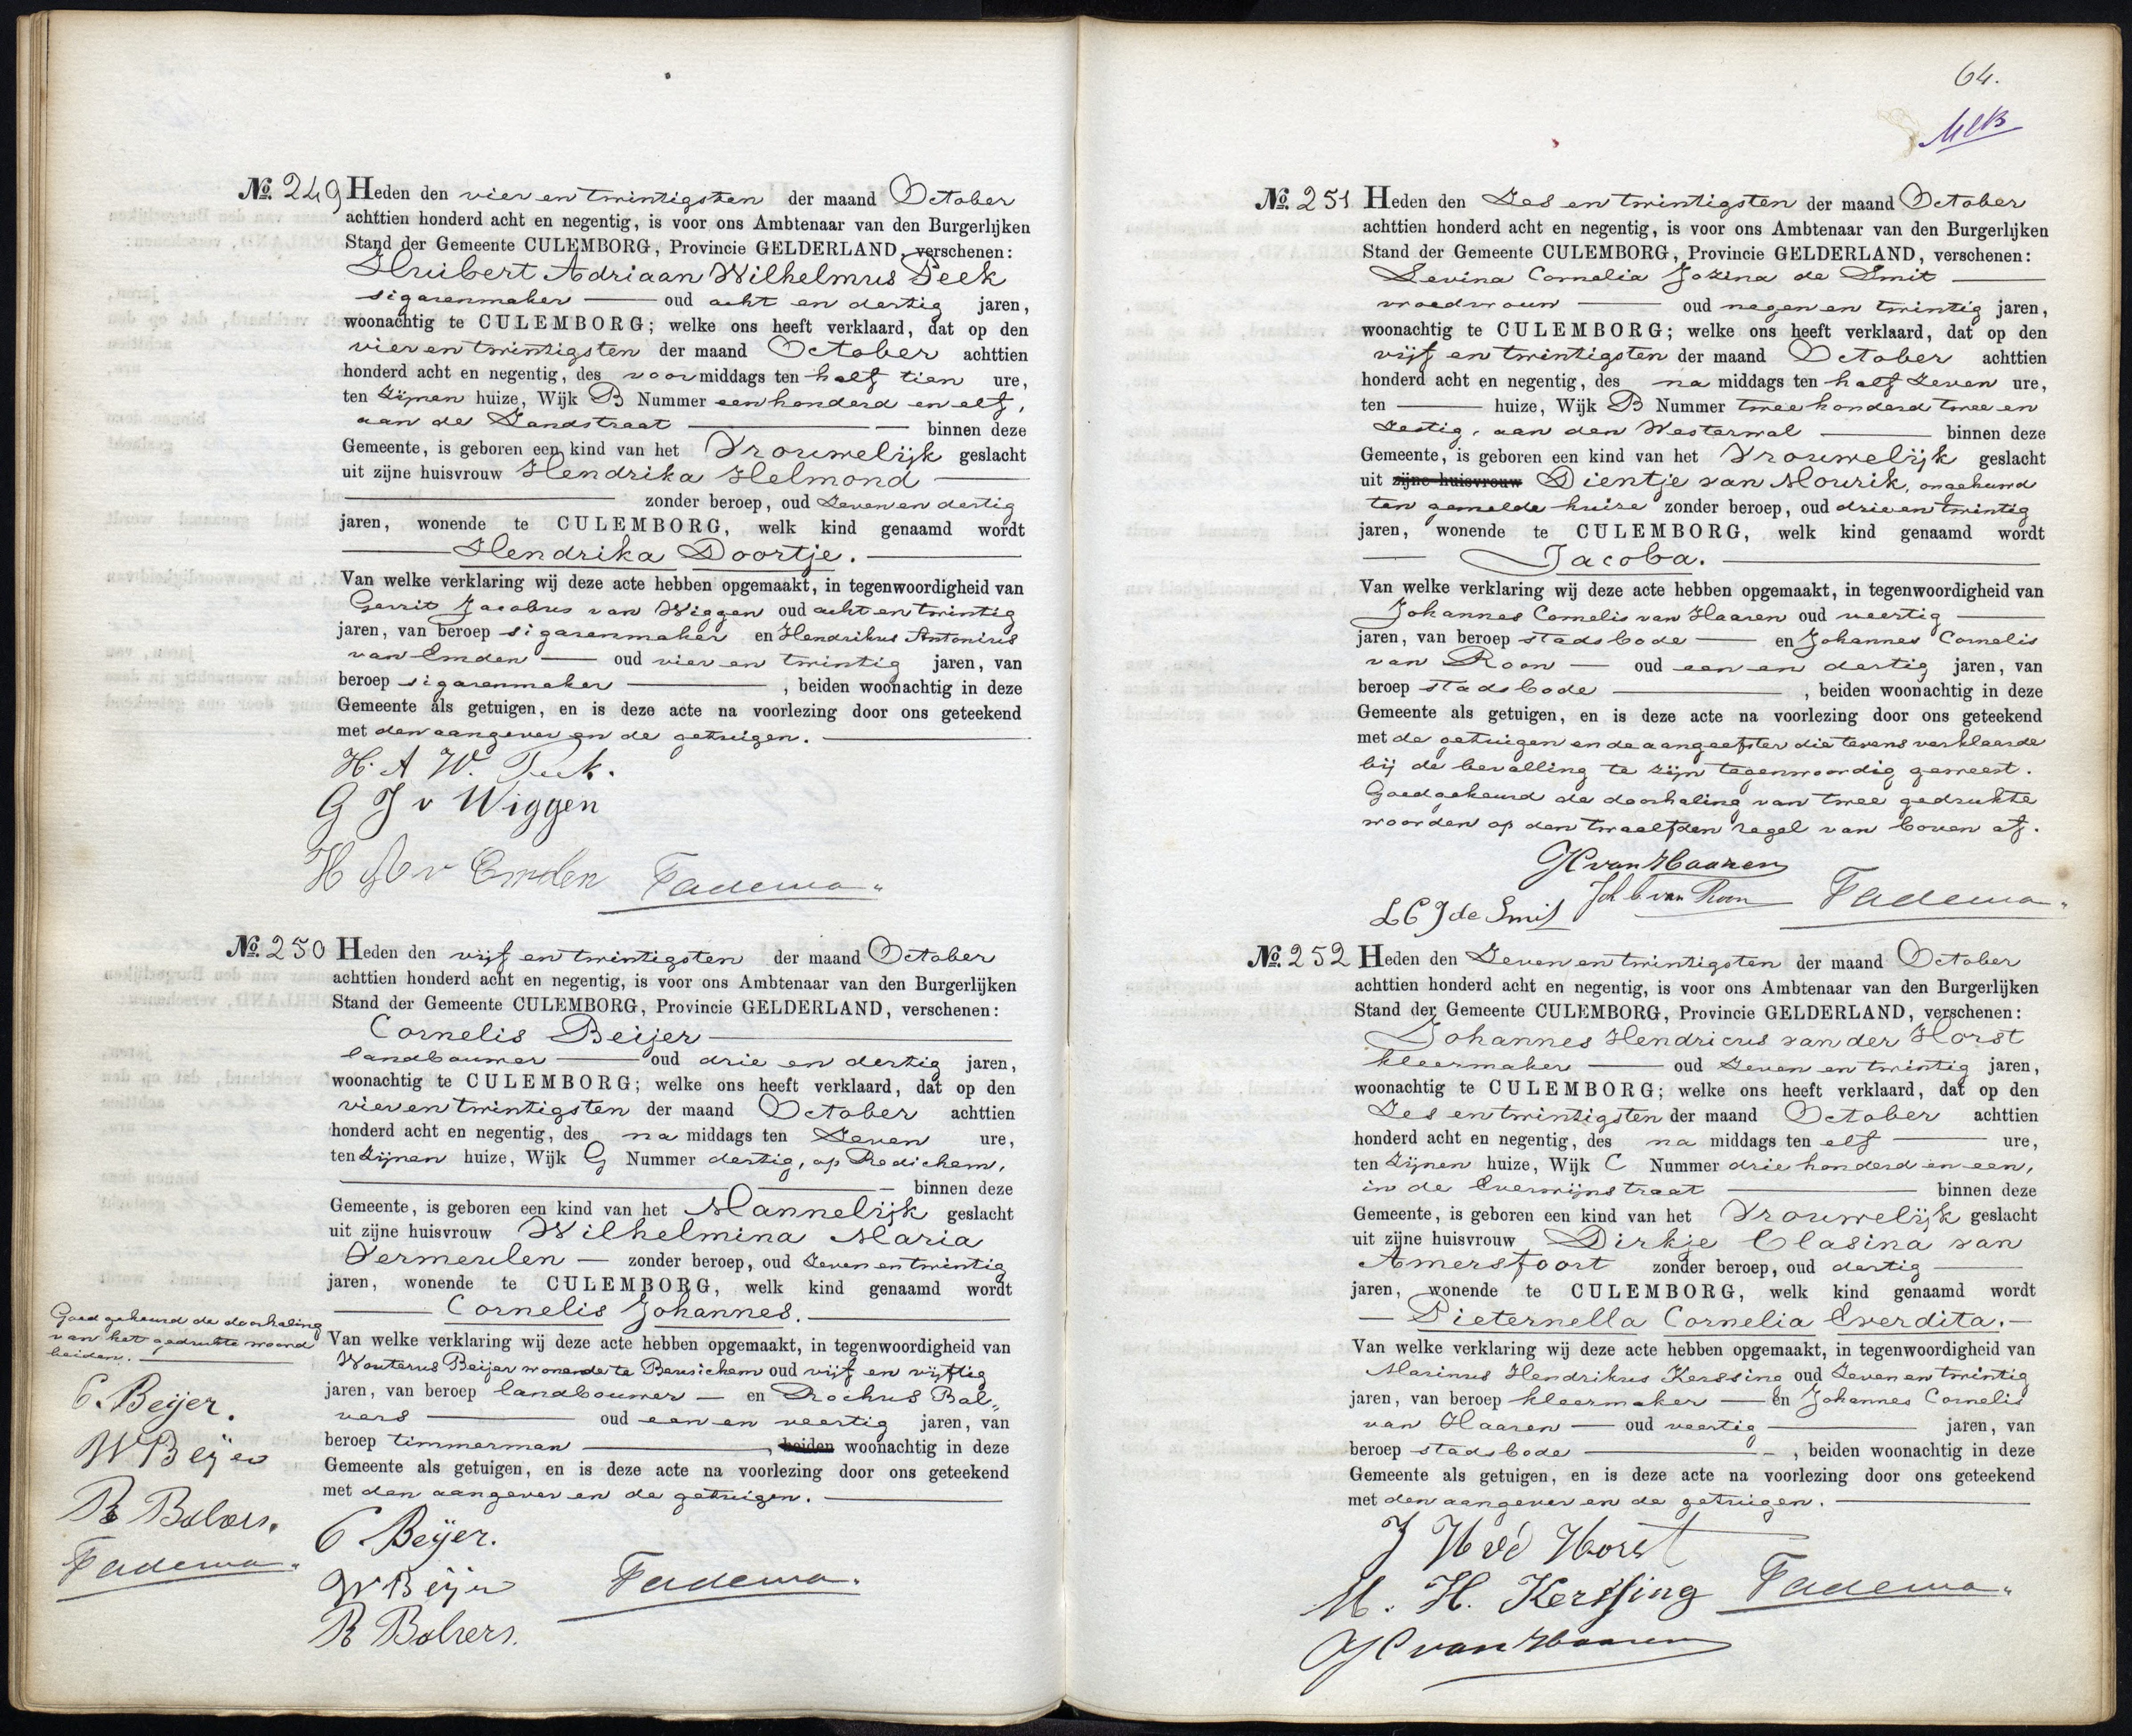 No. 249 Heden den vier en twintigsten der maand October
achttien honderd acht en negentig, is voor ons Ambtenaar van den Burgerlijken
Stand der Gemeente CULEMBORG, Provincie GELDERLAND, verschenen:
Huibert Adriaan Wilhelmus Peek
sigarenmaker oud acht en dertig jaren,
woonachtig te CULEMBORG; welke ons heeft verklaard, dat op den
vier en twintigsten der maand October achttien
honderd acht en negentig, des voormiddags ten half tien ure,
ten zijnen huize, Wijk B Nummer een honderd en elf,
aan de Zandstraat binnen deze
Gemeente, is geboren een kind van het Vrouwelijk geslacht
uit zijne huisvrouw Hendrika Helmond
zonder beroep, oud zeven en dertig
jaren, wonende te CULEMBORG, welk kind genaamd wordt
Hendrika Doortje.
Van welke verklaring wij deze acte hebben opgemaakt, in tegenwoordigheid van
Gerrit Jacobus van Wiggen oud acht en twintig
jaren, van beroep sigarenmaker en Hendrikus Antonius
van Emden oud vier en twintig jaren, van
beroep sigarenmaker, beiden woonachtig in deze
Gemeente als getuigen, en is deze acte na voorlezing door ons geteekend
met den aangever en de getuigen.
H. A W. Peek.
G J v Wiggen
H A v Emden Fadema
No. 250 Heden den vijf en twintigsten der maand October
achttien honderd acht en negentig, is voor ons Ambtenaar van den Burgerlijken
Stand der Gemeente CULEMBORG, Provincie GELDERLAND, verschenen:
Cornelis Beijer
landbouwer oud drie en dertig jaren,
woonachtig te CULEMBORG; welke ons heeft verklaard, dat op den
vier en twintigsten der maand October achttien
honderd acht en negentig, des na middags ten zeven ure,
ten zijnen huize, Wijk G Nummer dertig, op Redichem,
binnen deze
Gemeente, is geboren een kind van het Mannelijk geslacht
uit zijne huisvrouw Wilhelmina Maria
Vermeulen zonder beroep, oud zeven en twintig
jaren, wonende te CULEMBORG, welk kind genaamd wordt
Cornelis Johannes.
Van welke verklaring wij deze acte hebben opgemaakt, in tegenwoordigheid van
Wouterus Beijer wonende te Beusichem oud vijf en vijftig
jaren, van beroep landbouwer en Rochus Bol„
vers oud een en veertig jaren, van
beroep timmerman, beiden woonachtig in deze
Gemeente als getuigen, en is deze acte na voorlezing door ons geteekend
met den aangever en de getuigen.
C Beijer.
W Beijer Fadema
R Bolvers.
Goedgekeurd de doorhaling
van het gedrukte woord
beiden.
C. Beijer.
W Beijer
R Bolvers.
Fadema
64.
No. 251 Heden den Zes en twintigsten der maand October
achttien honderd acht en negentig, is voor ons Ambtenaar van den Burgerlijken
Stand der Gemeente CULEMBORG, Provincie GELDERLAND, verschenen:
Levina Cornelia Jozina de Smit
vroedvrouw oud negen en twintig jaren,
woonachtig te CULEMBORG; welke ons heeft verklaard, dat op den
vijf en twintigsten der maand October achttien
honderd acht en negentig, des na middags ten half zeven ure,
ten huize, Wijk B Nummer twee honderd twee en
zestig, aan den Westerwal binnen deze
Gemeente, is geboren een kind van het Vrouwelijk geslacht
uit zijne huisvrouw Dientje van Mourik, ongehuwd
ten gemelde huize zonder beroep, oud drie en twintig
jaren, wonende te CULEMBORG, welk kind genaamd wordt
Jacoba.
Van welke verklaring wij deze acte hebben opgemaakt, in tegenwoordigheid van
Johannes Cornelis van Haaren oud veertig
jaren, van beroep stadsbode en Johannes Cornelis
van Roon oud een en dertig jaren, van
beroep stadsbode, beiden woonachtig in deze
Gemeente als getuigen, en is deze acte na voorlezing door ons geteekend
met de getuigen en de aangeefster die tevens verklaarde
bij de bevalling te zijn tegenwoordig geweest.
Goedgekeurd de doorhaling van twee gedrukte
woorden op den twaalfden regel van boven af.
JC van Haaren
L C J de Smit Joh C van Roon Fadema
No. 252 Heden den Zeven en twintigsten der maand October
achttien honderd acht en negentig, is voor ons Ambtenaar van den Burgerlijken
Stand der Gemeente CULEMBORG, Provincie GELDERLAND, verschenen:
Johannes Hendricus van der Horst
kleermaker oud zeven en twintig jaren,
woonachtig te CULEMBORG; welke ons heeft verklaard, dat op den
Zes en twintigsten der maand October achttien
honderd acht en negentig, des na middags ten elf ure,
ten zijnen huize, Wijk C Nummer drie honderd en een,
in de Everwijnstraat binnen deze
Gemeente, is geboren een kind van het Vrouwelijk geslacht
uit zijne huisvrouw Dirkje Clasina van
Amersfoort zonder beroep, oud dertig
jaren, wonende te CULEMBORG, welk kind genaamd wordt
Pieternella Cornelia Everdita.
Van welke verklaring wij deze acte hebben opgemaakt, in tegenwoordigheid van
Marinus Hendrikus Kerssing oud zeven en twintig
jaren, van beroep kleermaker en Johannes Cornelis
van Haaren oud veertig jaren, van
beroep stadsbode, beiden woonachtig in deze
Gemeente als getuigen, en is deze acte na voorlezing door ons geteekend
met den aangever en de getuigen.
J H vd Horst
M. H. Kerssing Fadema
JC van Haaren